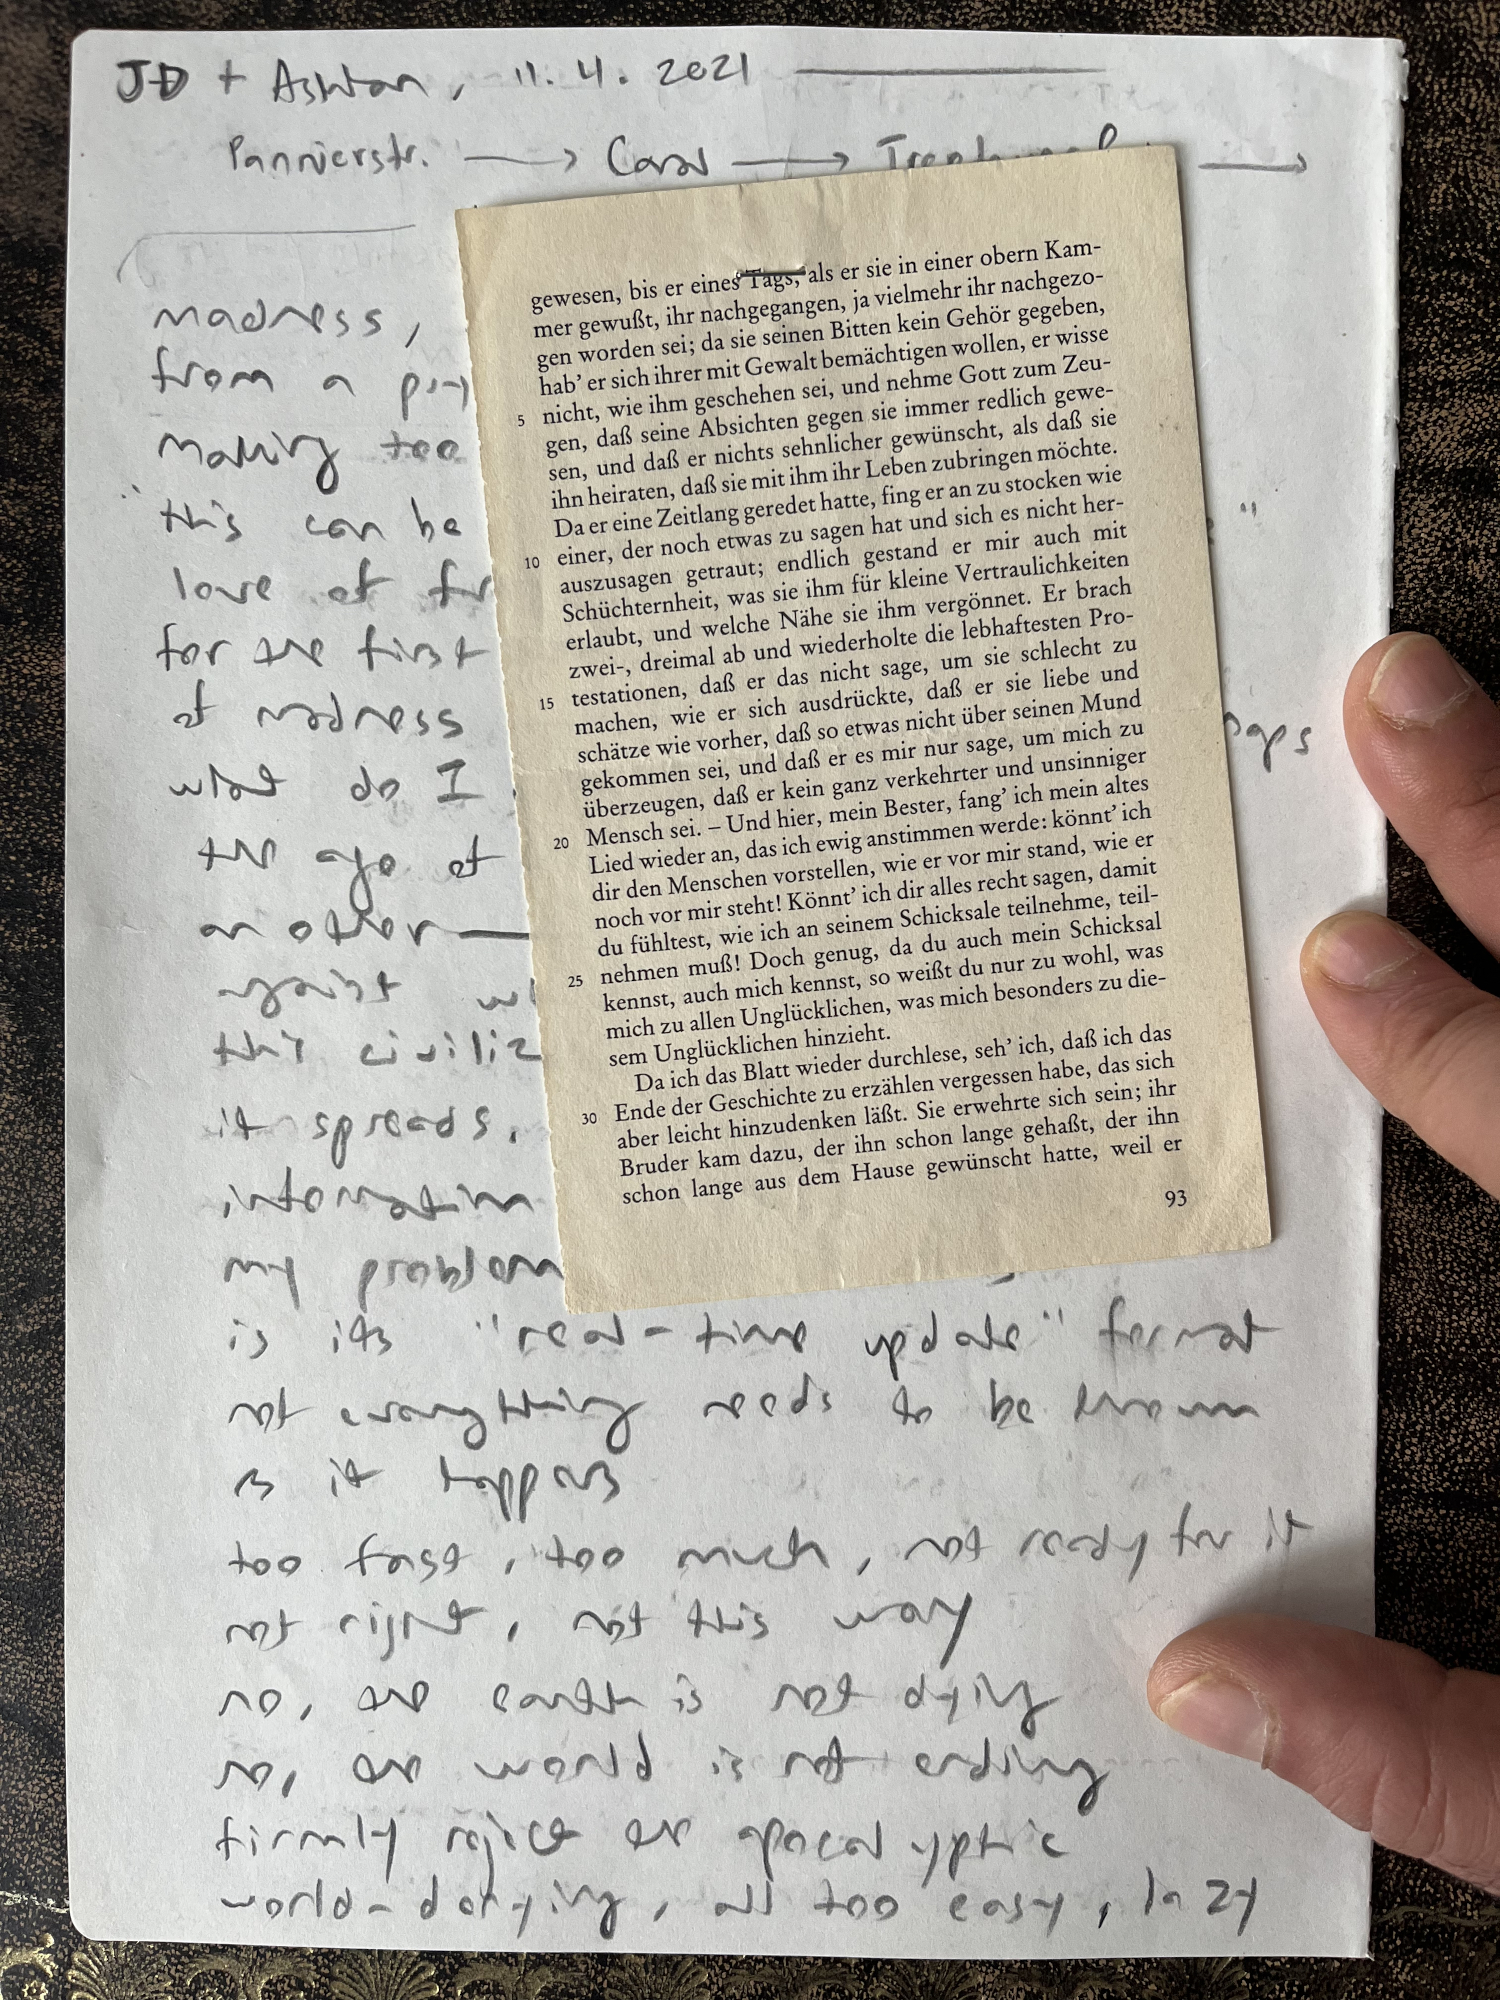 JD + Ashton, 11. 4. 2021
Pannierstr. → → →
madness,
from a
making too
"this can be "
love of
for the first
of madness
what do I
the age of
another —
against
this
it spreads.
information
my problem
is its "real-time update" format
not everything needs to be known
as it happens
too fast, too much, not ready for it
not right, not this way
no, the earth is not dying
no, the world is not ending
firmly reject the apocalyptic
world-denying, all too easy, lazy
gewesen, bis er eines Tags, als er sie in einer obern Kam-
mer gewußt, ihr nachgegangen, ja vielmehr ihr nachgezo-
gen worden sei; da sie seinen Bitten kein Gehör gegeben,
hab' er sich ihrer mit Gewalt bemächtigen wollen, er wisse
5 nicht, wie ihm geschehen sei, und nehme Gott zum Zeu-
gen, daß seine Absichten gegen sie immer redlich gewe-
sen, und daß er nichts sehnlicher gewünscht, als daß sie
ihn heiraten, daß sie mit ihm ihr Leben zubringen möchte.
Da er eine Zeitlang geredet hatte, fing er an zu stocken wie
10 einer, der noch etwas zu sagen hat und sich es nicht her-
auszusagen getraut; endlich gestand er mir auch mit
Schüchternheit, was sie ihm für kleine Vertraulichkeiten
erlaubt, und welche Nähe sie ihm vergönnet. Er brach
zwei-, dreimal ab und wiederholte die lebhaftesten Pro-
15 testationen, daß er das nicht sage, um sie schlecht zu
machen, wie er sich ausdrückte, daß er sie liebe und
schätze wie vorher, daß so etwas nicht über seinen Mund
gekommen sei, und daß er es mir nur sage, um mich zu
überzeugen, daß er kein ganz verkehrter und unsinniger
20 Mensch sei. – Und hier, mein Bester, fang' ich mein altes
Lied wieder an, das ich ewig anstimmen werde: könnt' ich
dir den Menschen vorstellen, wie er vor mir stand, wie er
noch vor mir steht! Könnt' ich dir alles recht sagen, damit
du fühltest, wie ich an seinem Schicksale teilnehme, teil-
25 nehmen muß! Doch genug, da du auch mein Schicksal
kennst, auch mich kennst, so weißt du nur zu wohl, was
mich zu allen Unglücklichen, was mich besonders zu die-
sem Unglücklichen hinzieht.
Da ich das Blatt wieder durchlese, seh' ich, daß ich das
30 Ende der Geschichte zu erzählen vergessen habe, das sich
aber leicht hinzudenken läßt. Sie erwehrte sich sein; ihr
Bruder kam dazu, der ihn schon lange gehaßt, der ihn
schon lange aus dem Hause gewünscht hatte, weil er
93